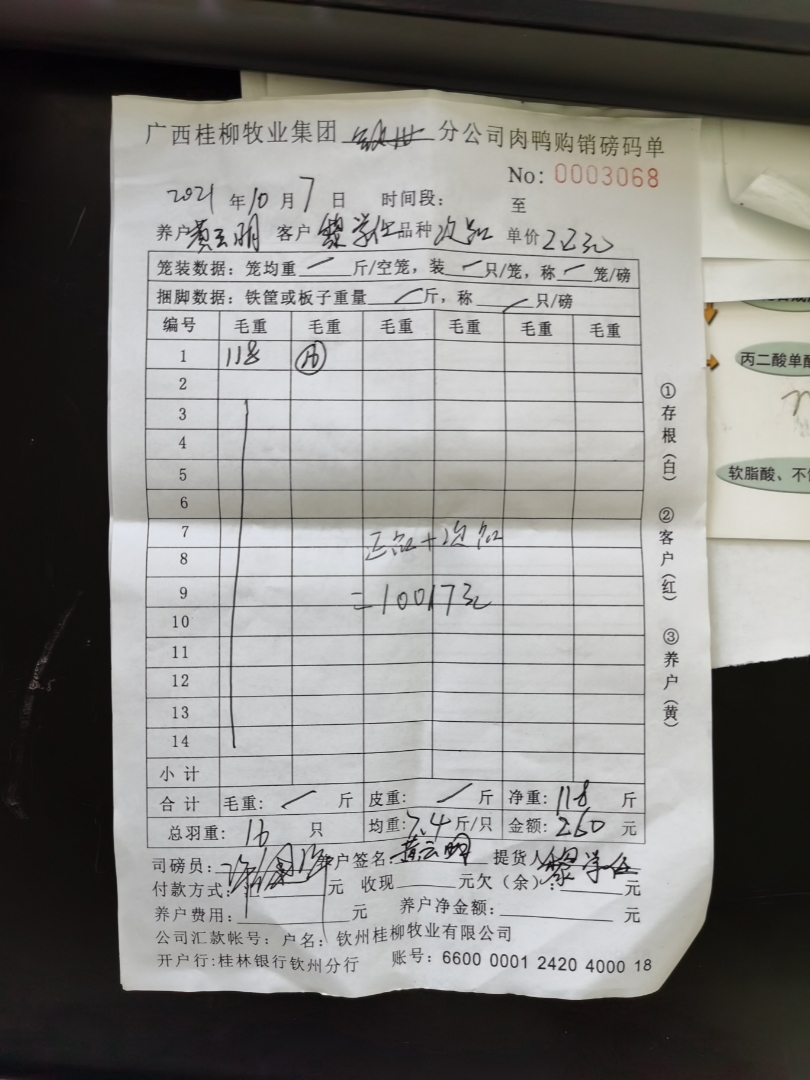 广西桂柳牧业集团 钦州 分公司肉鸭购销磅码单
No: 0003068
2021 年 10 月 7 日 时间段: 至
养户 黄云明 客户 黎学仕 品种 次品 单价 2.2元
笼装数据: 笼均重 / 斤/空笼, 装 / 只/笼, 称 / 笼/磅
捆脚数据: 铁筐或板子重量 / 斤, 称 / 只/磅
编号 毛重 毛重 毛重 毛重 毛重 毛重
1 118 16
2
3
4
5
6
7
正品+次品
8
9
=10017元
10
11
12
13
14
小计
合计 毛重: / 斤 皮重: / 斤 净重: 118 斤
总羽重: 16 只 均重: 7.4 斤/只 金额: 260 元
司磅员: 养户签名 黄云明 提货人 黎学仕
付款方式: 元 收现 元欠(余): 元
养户费用: 元 养户净金额: 元
公司汇款帐号: 户名: 钦州桂柳牧业有限公司
开户行:桂林银行钦州分行 账号: 6600 0001 2420 4000 18
①存根(白) ②客户(红) ③养户(黄)
丙二酸单酰
软脂酸、不饱